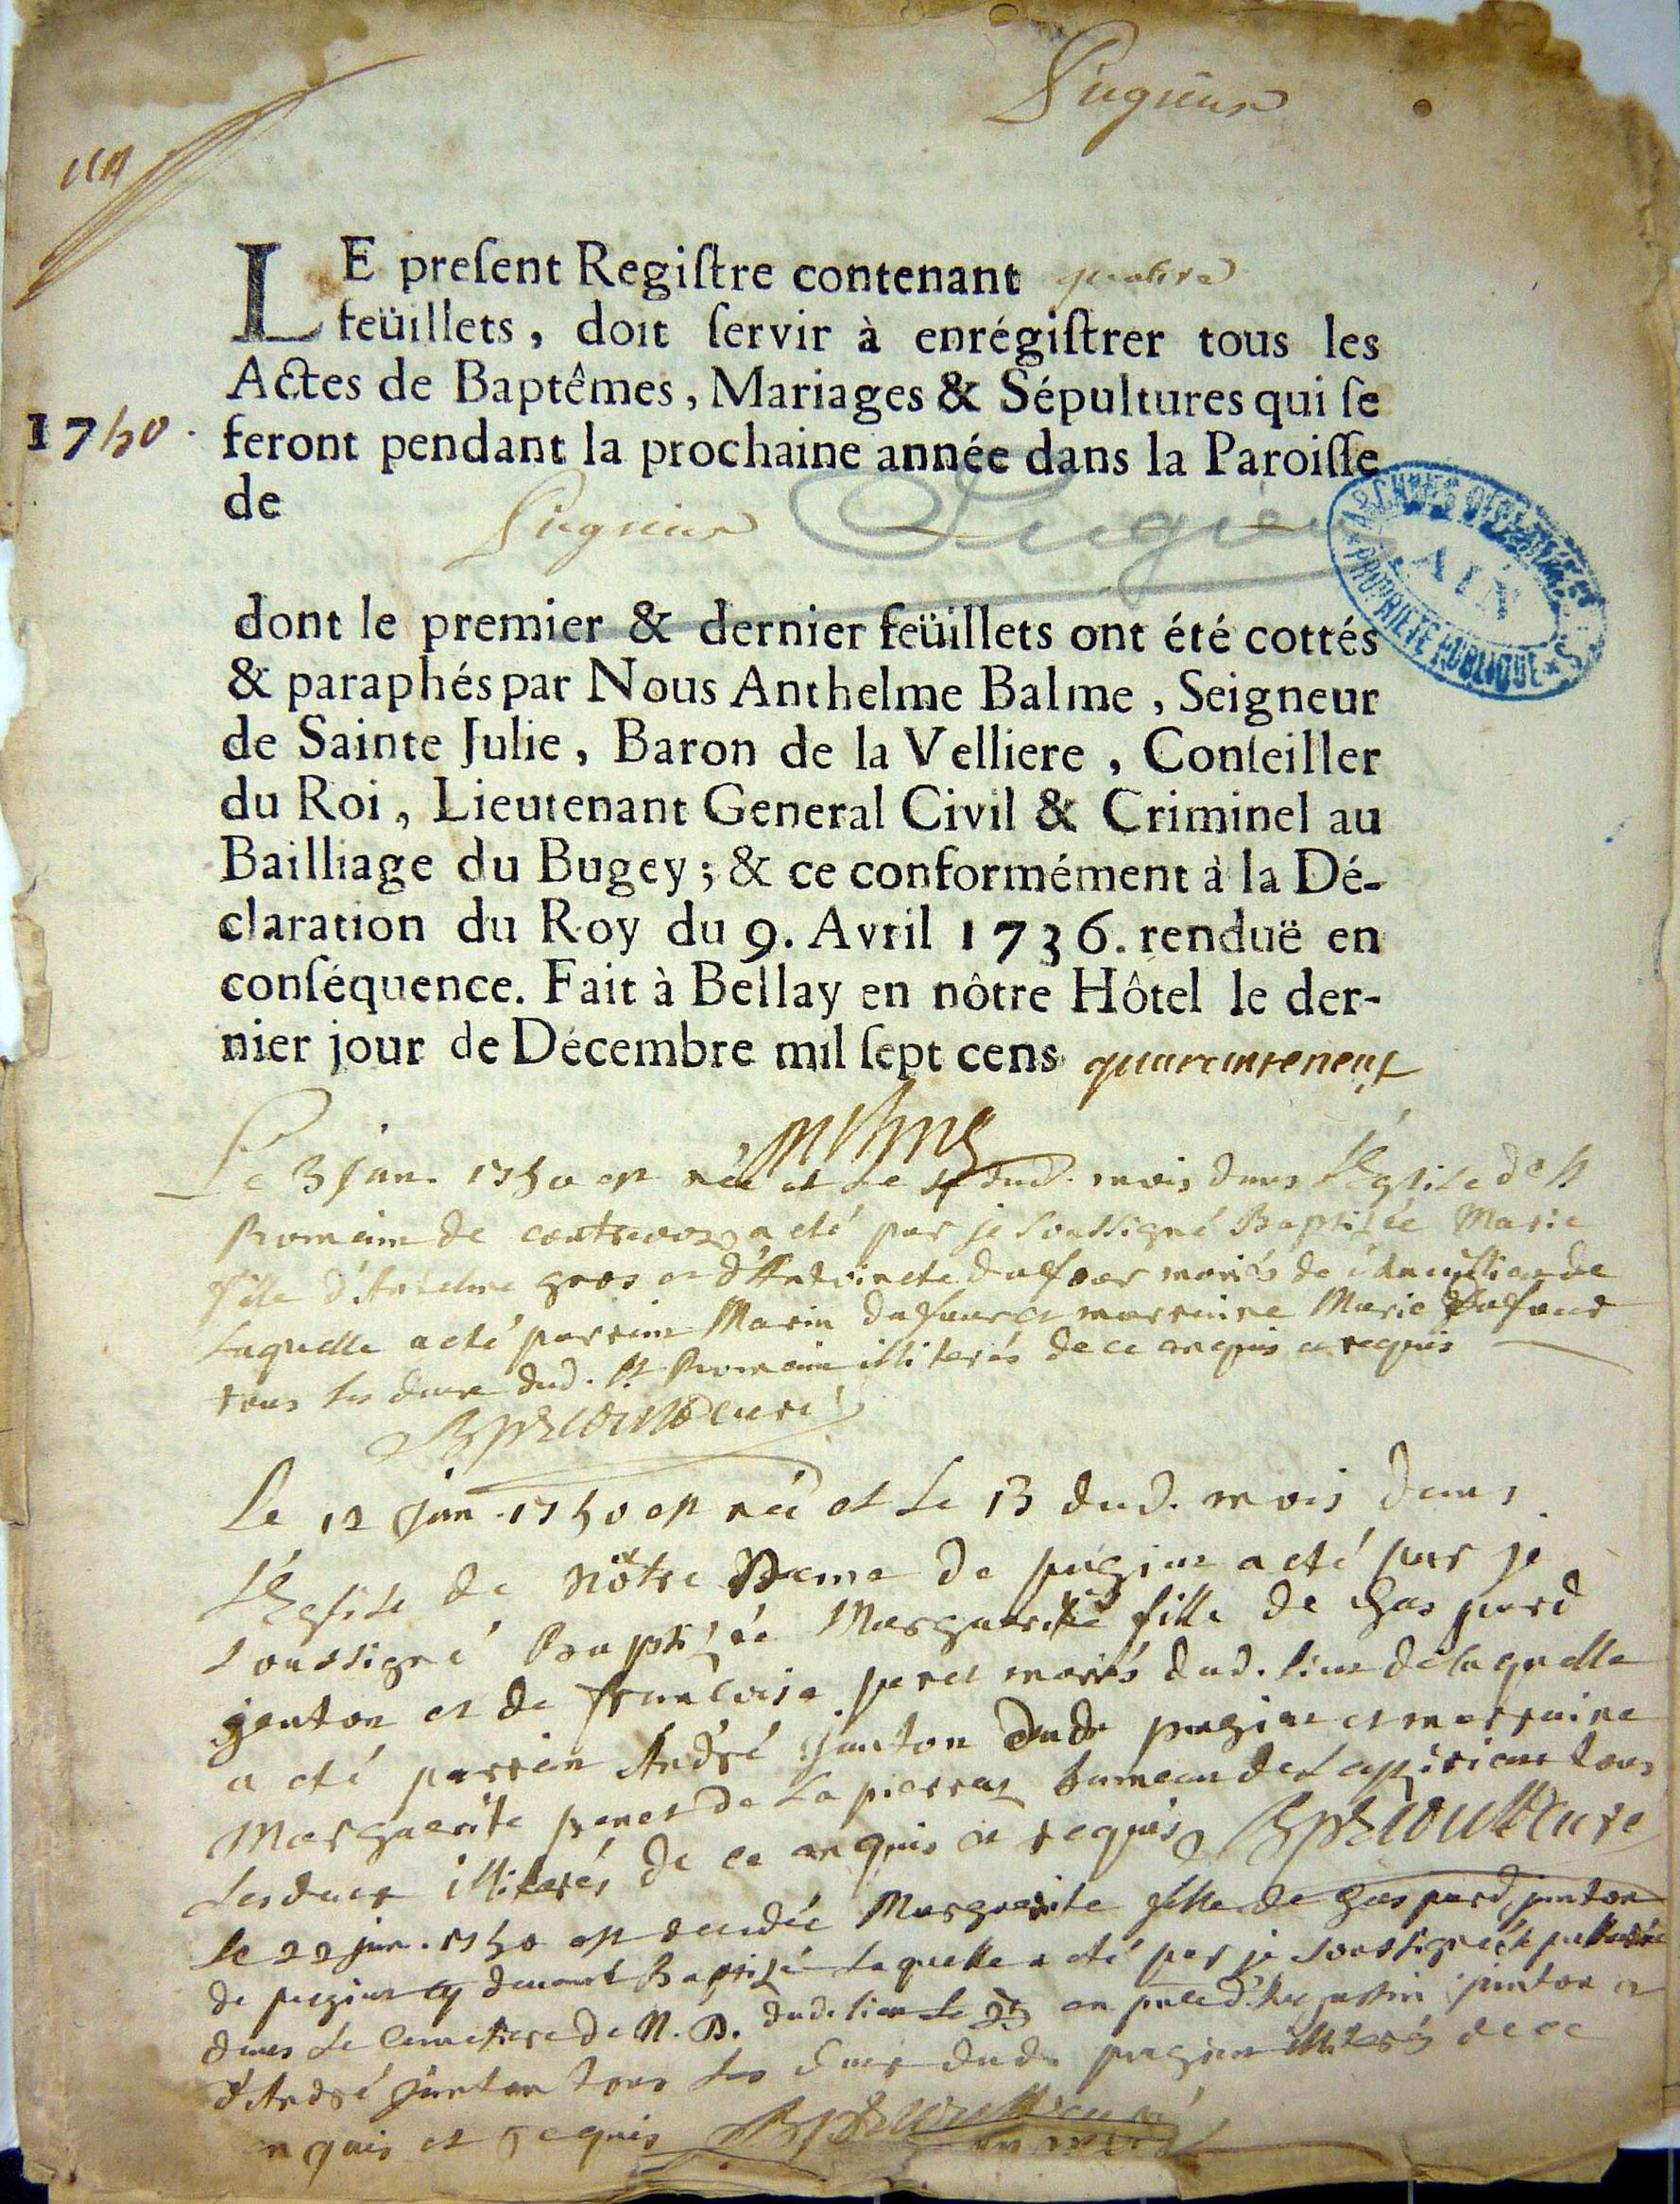 Pugieu
LE preſent Regiſtre contenant quatre
feüillets, doit ſervir à enrégiſtrer tous les
Actes de Baptêmes, Mariages & Sépultures qui ſe
1750. feront pendant la prochaine année dans la Paroiſſe
de Pugieu Pugieu
ARCHIVES DÉPARTEMENTALES AIN
PROPRIÉTÉ PUBLIQUE
dont le premier & dernier feüillets ont été cottés
& paraphés par Nous Anthelme Balme, Seigneur
de Sainte Julie, Baron de la Velliere, Conſeiller
du Roi, Lieutenant General Civil & Criminel au
Bailliage du Bugey; & ce conformément à la Dé-
claration du Roy du 9. Avril 1736. renduë en
conſéquence. Fait à Bellay en nôtre Hôtel le der-
nier jour de Décembre mil ſept cens quaranteneuf
Le 3 jan. 1750 est née et Le 4 dud. mois dans L'Eglise de St
Romain de contrevoz a eté par je Soussigné Baptisée Marie
fille d'Antelme gros et d'Antoinete dufour mariés de
Laquelle a eté parrein Marin dufour et marreine Marie Dufour
tous les deux dud. St Romain illiterés de ce enquis et requis
curé
Le 12 Jan. 1750 est née et Le 13 dud. mois dans
L'Eglise de Nôtre Dame de pugieu a eté par je
Soussigné Baptisée Marguerite fille de Gaspard
genton et de francoise peret mariés dud. lieu de laquelle
a eté parrein André Janton dudt pugieu et marraine
Marguerite peret de La pierraz hameau de tous
Les deux illiterés de ce enquis et requis curé
Le 22 jan. 1750 est decedée Marguerite fille de Gaspard janton
de pugieu cy devant Baptisée Laquelle a eté par je soussigné
dans Le Cimetiere de N. D. dud. lieu Le 23 en janton et
d'André Janton tous Les deux dudt pugieu illiterés de ce
enquis et requis curé